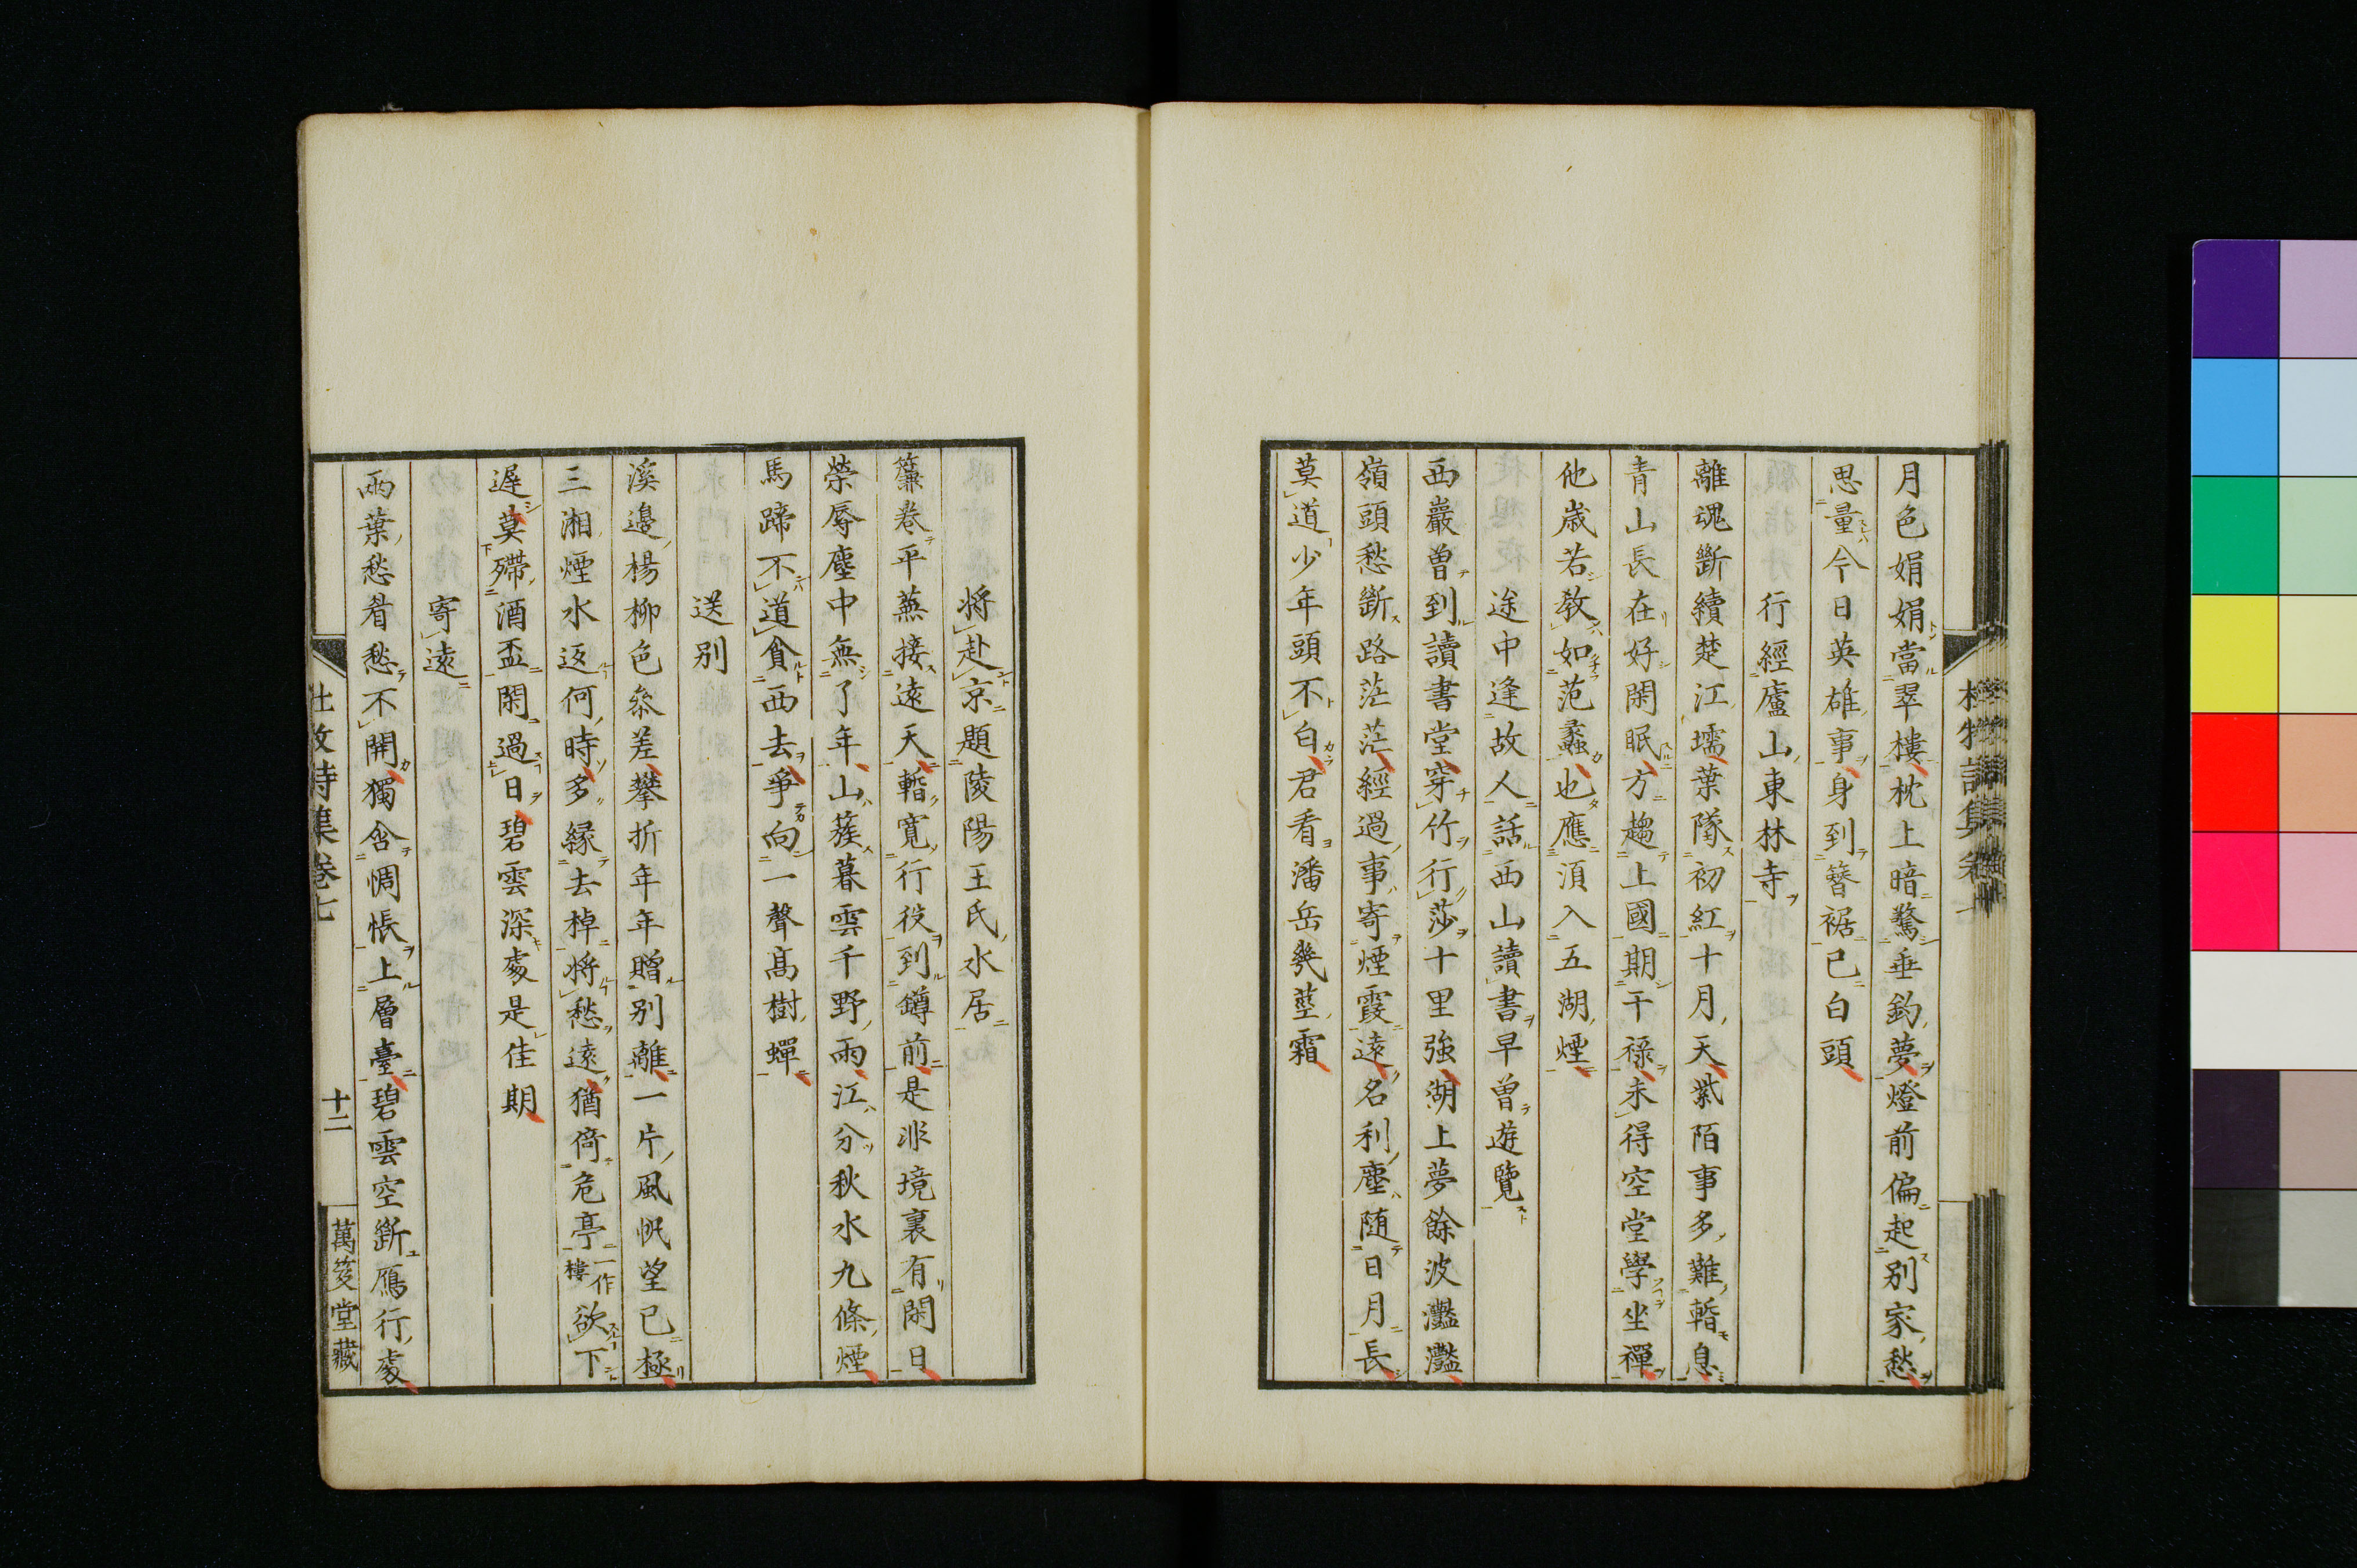 月色娟娟當翠樓枕上暗驚垂釣夢燈前偏起別家愁
思量今日英雄事身到簪裾已白頭
行經廬山東林寺
離魂斷續楚江壖葉隊初紅十月天紫陌事多難暫息
青山長在好閑眠方趨上國期干祿未得空堂學坐禪
他歲若教如范蠡也應須入五湖煙
途中逢故人話西山讀書早曾遊覽
西巖曽到讀書堂穿竹行莎十里強湖上夢餘波灩灩
嶺頭愁斷路茫茫經過事寄煙霞遠名利塵随日月長
莫道少年頭不白君看潘岳幾莖霜
将赴京題陵陽王氏水居
簾卷平蕪接遠天暫寬行役到罇前是非境裏有閑日
榮辱塵中無了年山蔟暮雲千野雨江分秋水九條煙
馬蹄不道貪西去爭向一聲髙樹蟬
送別
溪邉楊柳色叅差攀折年年贈別離一片風帆望已極
三湘煙水返何時多縁去棹將愁遠猶倚危亭一作樓欲下
遲莫殢酒盃閑過日碧雲深處是佳期
寄遠
兩葉愁眉愁不開獨含惆悵上層臺碧雲空斷鴈行處
杜牧詩集卷七
十二
萬笈堂藏